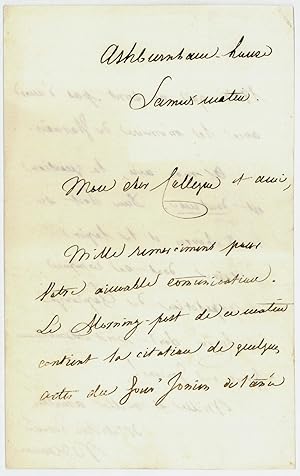 Ashburnham house
Samedi matin.
Mon cher Collègue et ami,
Mille remerciment pour
Votre aimable comunication.
Le Morning-post de ce matin
contient la citation de quelques
actes du